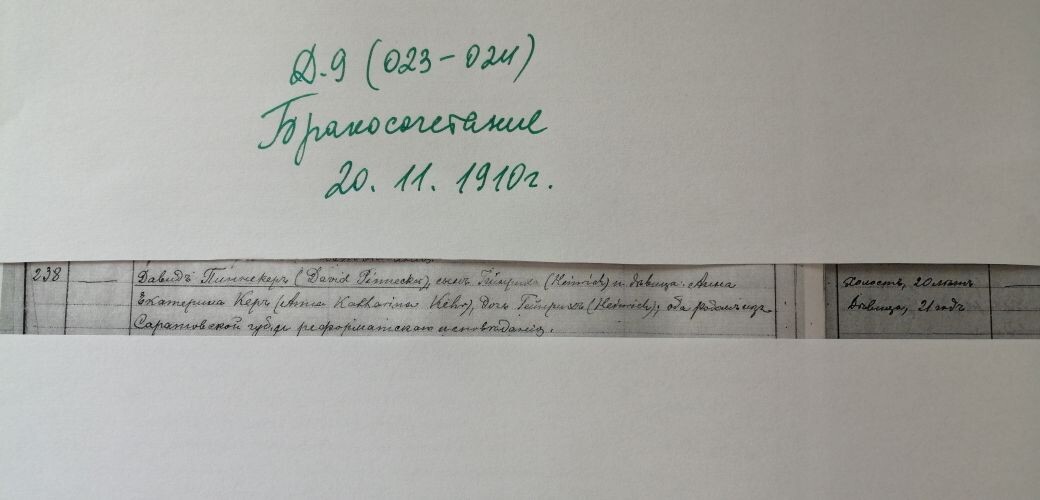 Д.9 (023-024)
Бракосочетание
20. 11. 1910г.
238
Давидъ Пиннекеръ (David Pinnecker), сынъ Гейнриха (Heinrich) и дѣвица Анна
Екатерина Керъ (Anna Katharina Kehr), дочь Гейнриха (Heinrich), оба родомъ изъ
Саратовской губ. и реформатскаго исповѣданія.
Холостъ, 20 лѣтъ
Дѣвица, 21 годъ